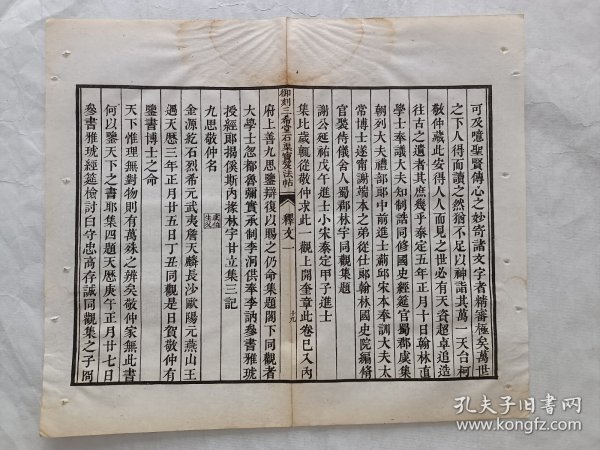 可及噫聖賢傳心之妙寄諸文字者精審極矣萬世
之下人得而讀之然猶不足以神詣其萬一天台柯
敬仲藏此安得人人而見之世必有天資超卓追造
往古之遺者其庶幾乎泰定五年正月十日翰林直
學士奉議大夫知制誥同修國史經筵官蜀郡虞集
朝列大夫禮部郎中前進士薊邱宋本奉訓大夫太
常博士遂甯謝端本之弟從仕郎翰林國史院編脩
官褧侍儀舍人蜀郡林宇同觀集題
謝公延祐戊午進士小宋泰定甲子進士
集比歲輒從敬仲求此一觀上開奎章此卷已入內
御刻三希堂石渠寶笈法帖
釋文一
十九
府上善九思鑒辯復以賜之仍命集題閣下同觀者
大學士忽都魯彌實承制李泂供奉李訥參書雅琥
授經郎揭傒斯內掾林宇甘立集三記
九思敬仲名
金源紇石烈希元武夷詹天麟長沙歐陽元燕山王
遇天厯三年正月廿五日丁丑同觀是日賀敬仲有
鑒書博士之命
天下惟理無對物則有萬殊之辨矣敬仲家無此書
何以鑒天下之書耶集四題天厯庚午正月廿七日
參書雅琥經筵檢討白守忠高存誠同觀集之子岡
孔夫子旧書网
www.kongfz.com